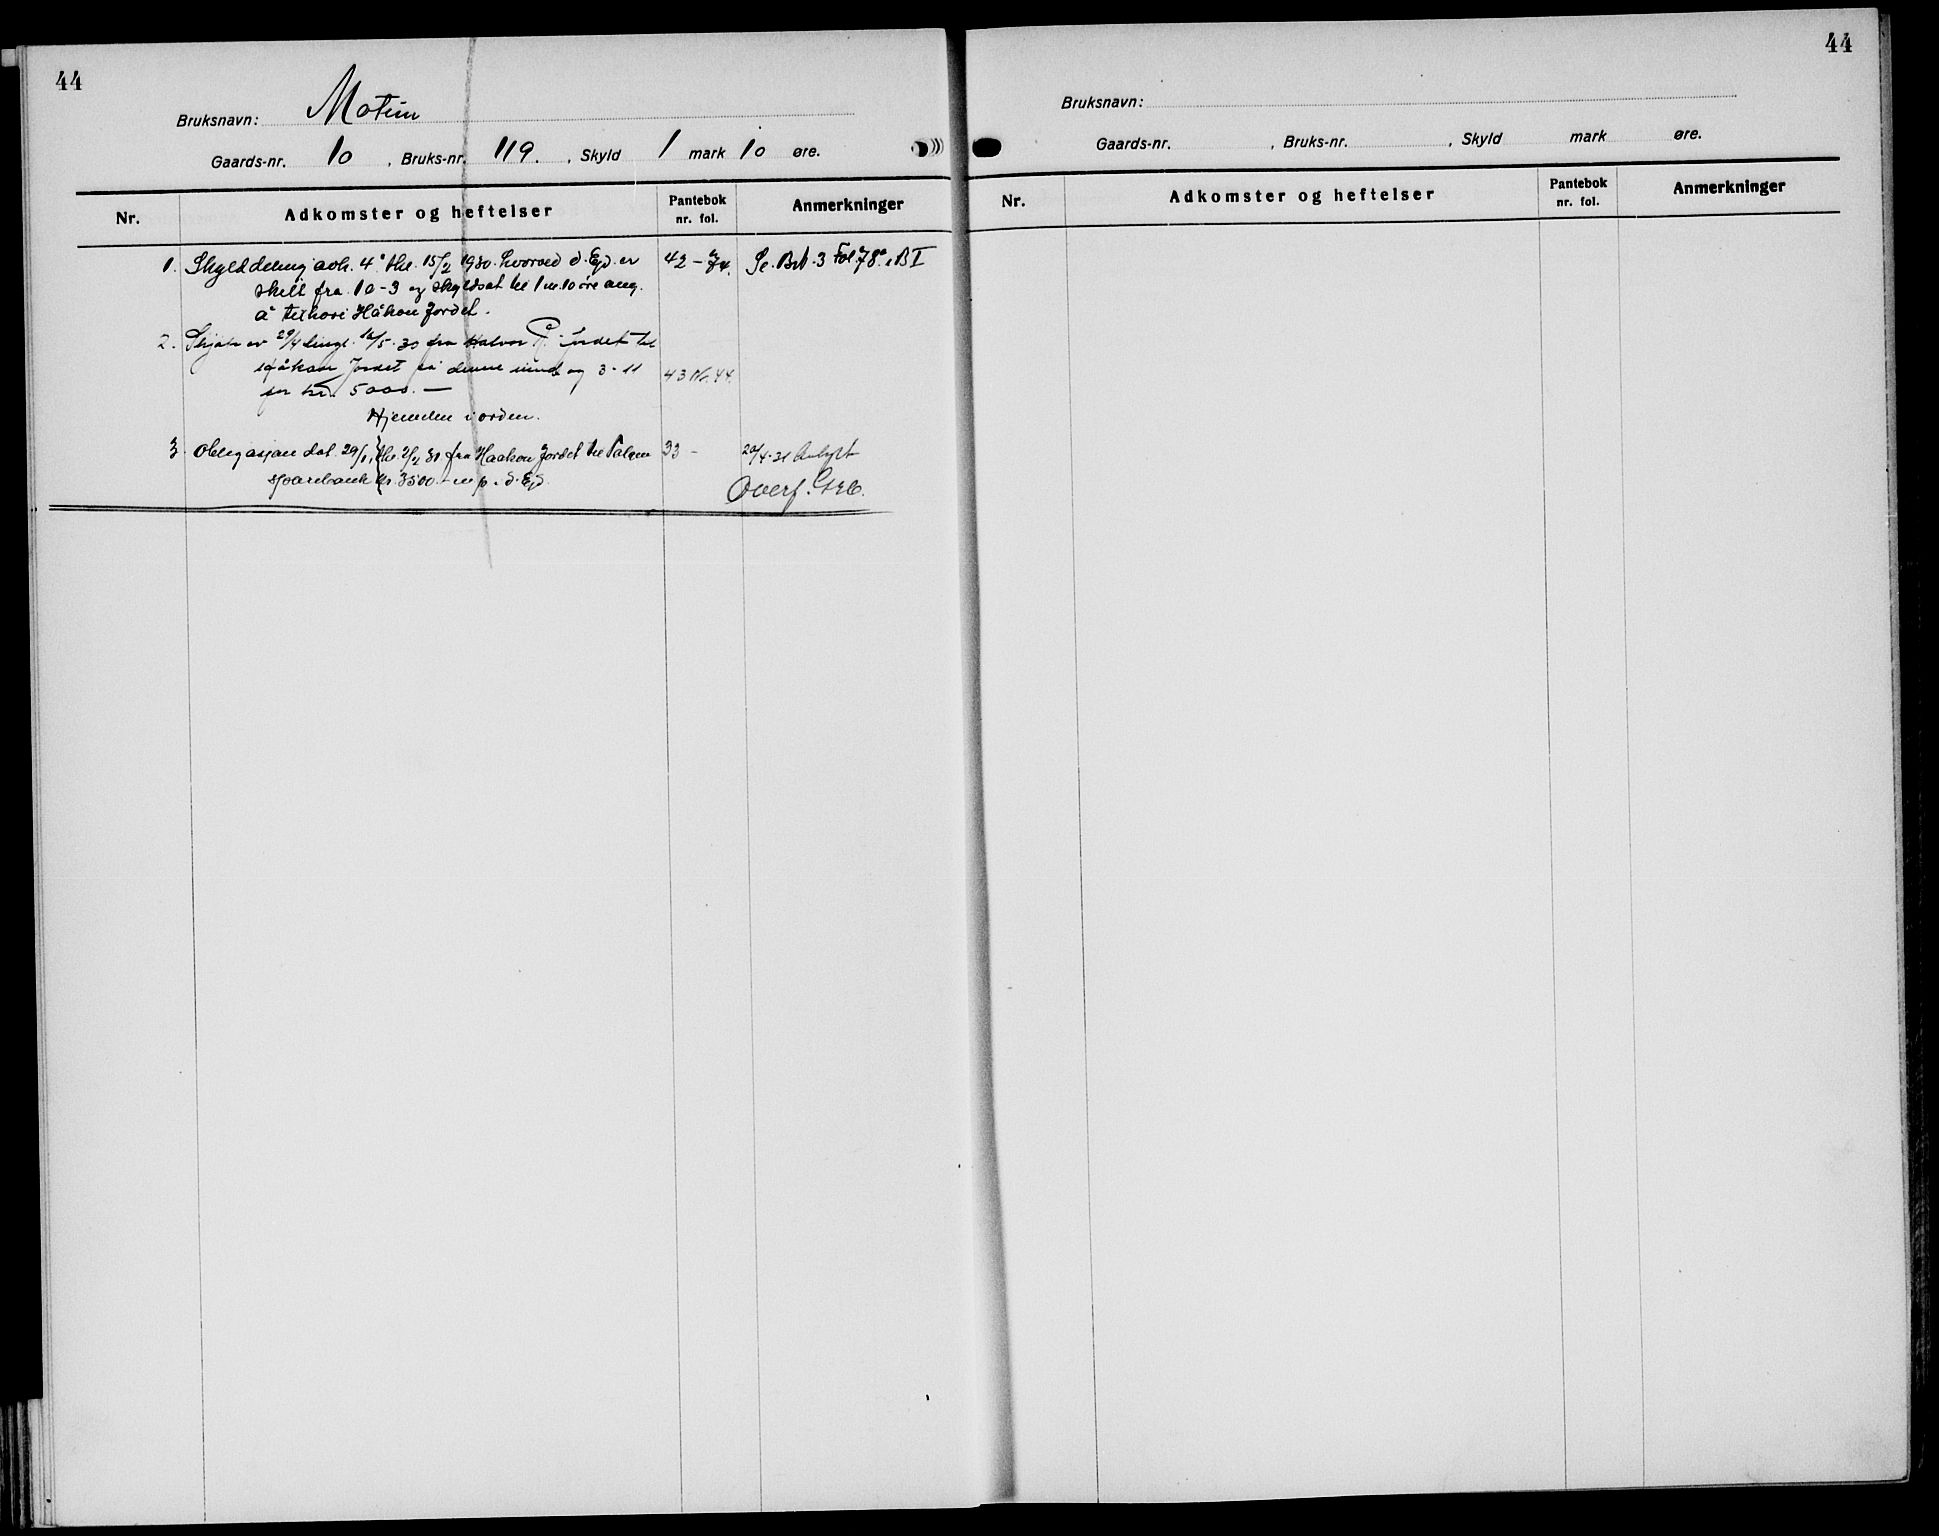 44
Bruksnavn: Motun
Gaards-nr. 10, Bruks-nr. 119., Skyld 1 mark 10 øre.
Nr. Adkomster og heftelser Pantebok nr. fol. Anmerkninger
1. Skylddeling avh. 4° thl. 15/2 1930. hvorved d. Ejd. er 42 - 74. Se. Brb. 3 Fol 78. i B I
skilt fra 10-3 og skyldsat til 1 m. 10 øre ang.
Håkon Jordet.
2. Skjøte av 29/4 tingl. 16/5 30 fra Halvor P. Jordet til
Håkon Jordet på denne eiend og 3-11 43 No. 44.
for kr. 5000.—
Hjemmelen i orden.
3. Obligasjon dat. 29/1, thl. 2/2 31 fra Haakon Jordet til 33 - 20/4-31 Avlyst
sparebank kr. 3500.- m p. i d. Ejd. Overf.
44
Bruksnavn:
Gaards-nr. , Bruks-nr. , Skyld mark øre.
Nr. Adkomster og heftelser Pantebok nr. fol. Anmerkninger